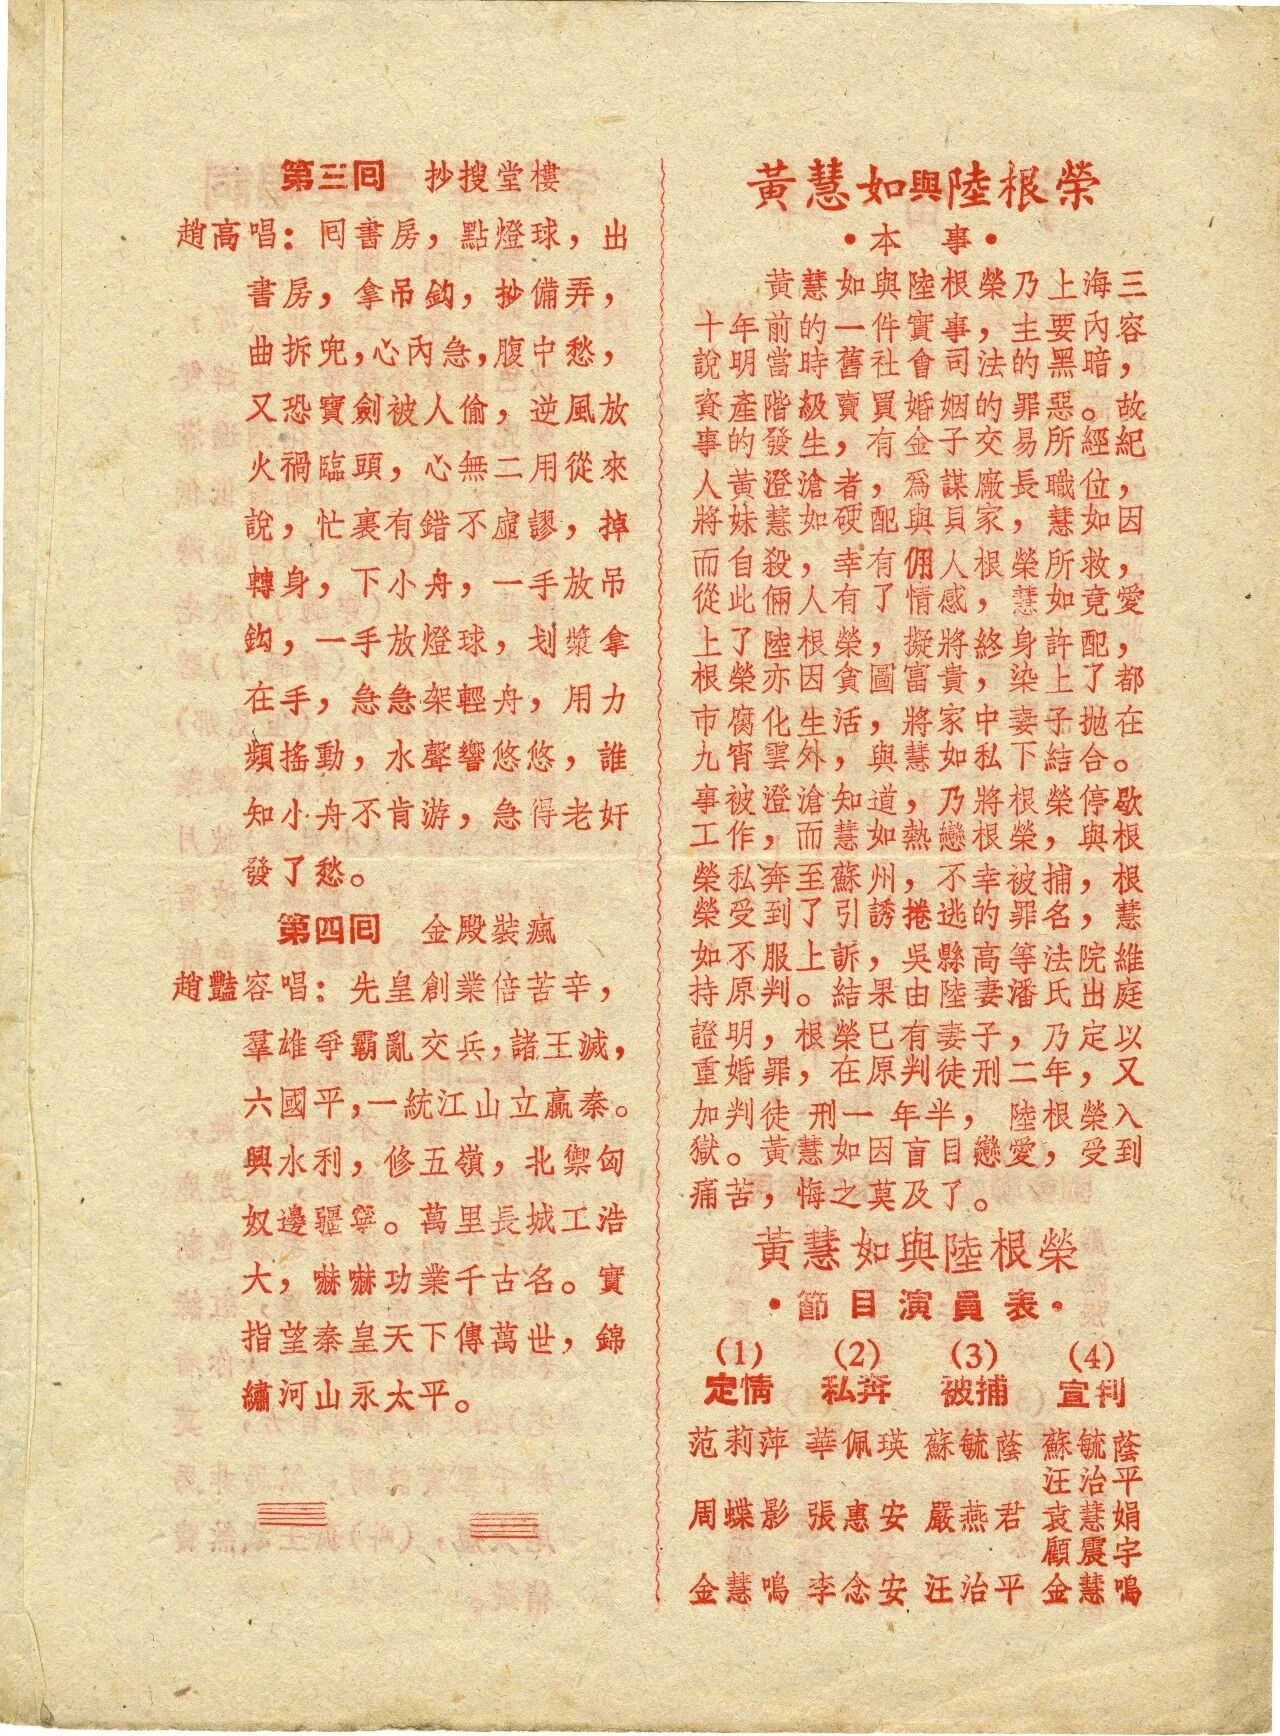 第三回　抄搜堂樓
趙高唱：囘書房，點燈球，出
書房，拿吊鈎，抄備弄，
曲拆兜，心內急，腹中愁，
又恐寶劍被人偷，逆風放
火禍臨頭，心無二用從來
說，忙裏有錯不虛謬，掉
轉身，下小舟，一手放吊
鈎，一手放燈球，划槳拿
在手，急急架輕舟，用力
頻搖動，水聲響悠悠，誰
知小舟不肯游，急得老奸
發了愁。
第四回　金殿裝瘋
趙豔容唱：先皇創業倍苦辛，
羣雄爭霸亂交兵，諸王滅，
六國平，一統江山立嬴秦。
興水利，修五嶺，北禦匈
奴邊疆寧。萬里長城工浩
大，嚇嚇功業千古名。實
指望秦皇天下傳萬世，錦
繡河山永太平。
黃慧如與陸根榮
·本　事·
黃慧如與陸根榮乃上海三
十年前的一件實事，主要內容
說明當時舊社會司法的黑暗，
資產階級賣買婚姻的罪惡。故
事的發生，有金子交易所經紀
人黃澄滄者，爲謀廠長職位，
將妹慧如硬配與貝家，慧如因
而自殺，幸有佣人根榮所救，
從此倆人有了情感，慧如竟愛
上了陸根榮，擬將終身許配，
根榮亦因貪圖富貴，染上了都
市腐化生活，將家中妻子拋在
九霄雲外，與慧如私下結合。
事被澄滄知道，乃將根榮停歇
工作，而慧如熱戀根榮，與根
榮私奔至蘇州，不幸被捕，根
榮受到了引誘捲逃的罪名，慧
如不服上訴，吳縣高等法院維
持原判。結果由陸妻潘氏出庭
證明，根榮已有妻子，乃定以
重婚罪，在原判徒刑二年，又
加判徒刑一年半，陸根榮入
獄。黃慧如因盲目戀愛，受到
痛苦，悔之莫及了。
黃慧如與陸根榮
·節目演員表·
(1)　(2)　(3)　(4)
定情　私奔　被捕　宣判
范莉萍　華佩瑛　蘇毓蔭　蘇毓蔭
汪治平
周蝶影　張惠安　嚴燕君　袁慧娟
顧震宇
金慧鳴　李念安　汪治平　金慧鳴